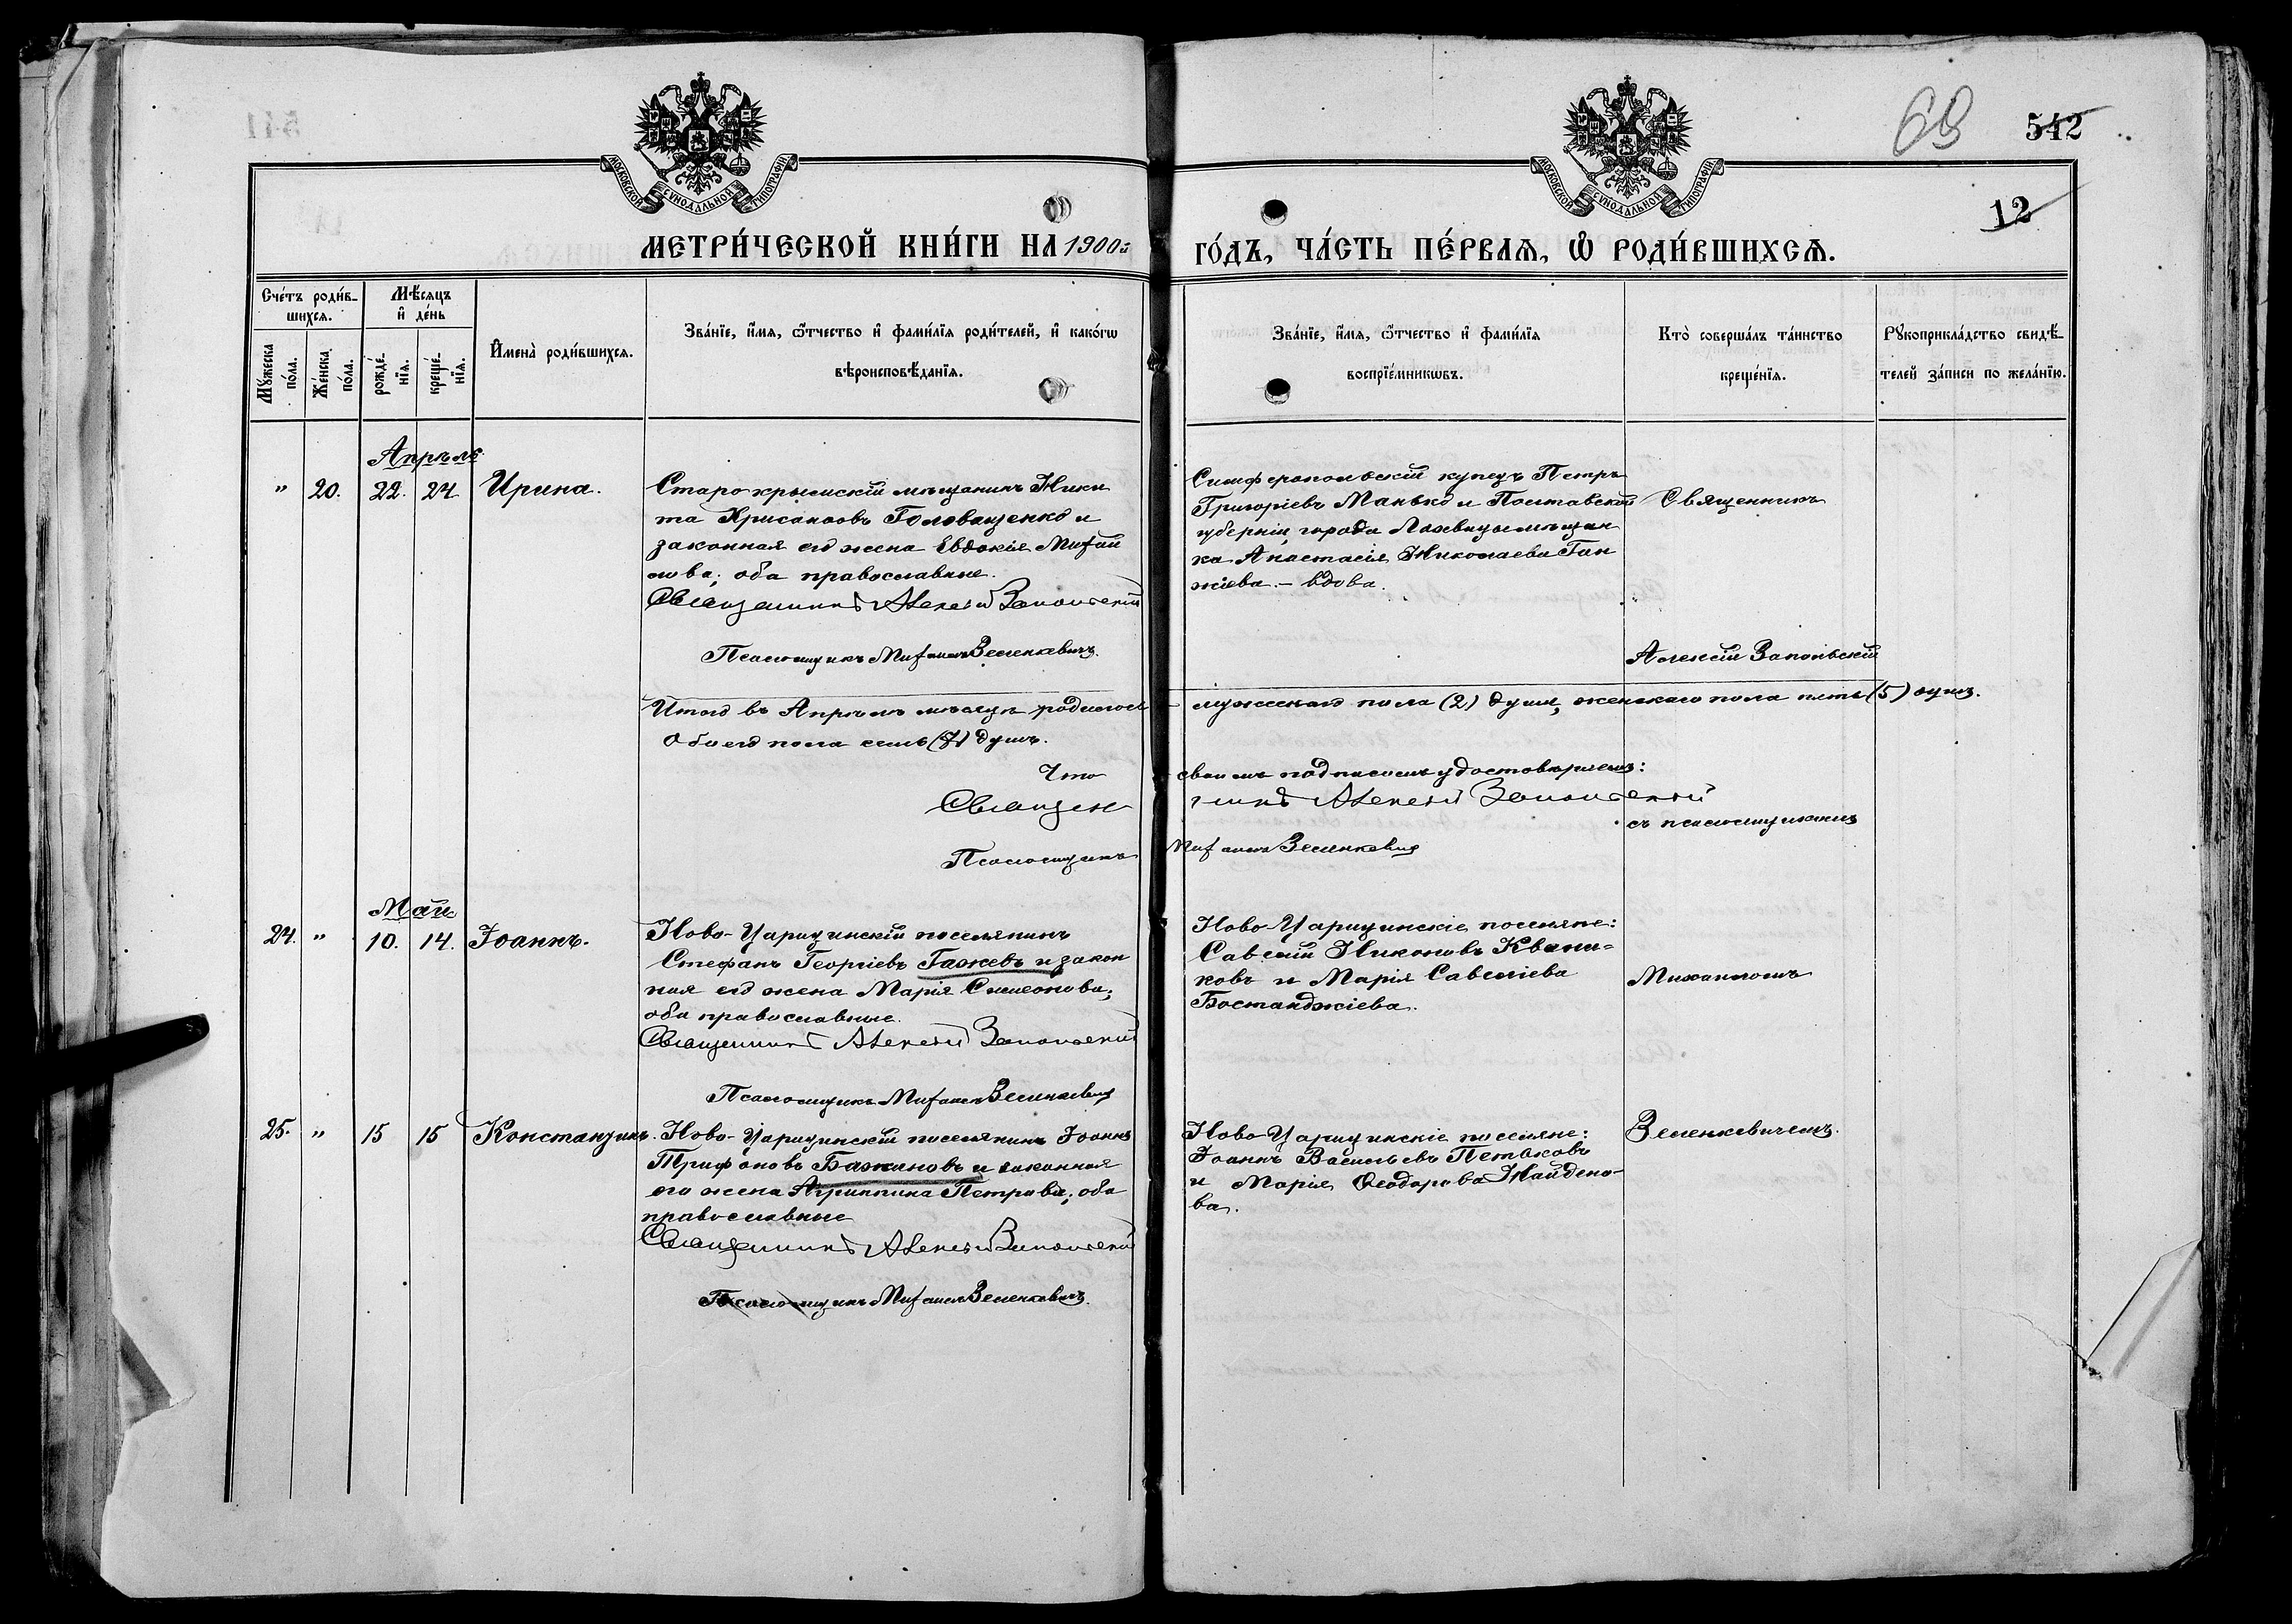 69 542
12
МОСКОВСКОЙ СѴНОДАЛЬНОЙ ТИПОГРАФІИ
МОСКОВСКОЙ СѴНОДАЛЬНОЙ ТИПОГРАФІИ
МЕТРИ́ЧЕСКОЙ КНИ́ГИ НА 1900й ГО́ДЪ, ЧА́СТЬ ПЕ́РВАѦ, Ѡ РОДИ́ВШИХСѦ.
Сче́тъ роди́в-
шихсѧ.
Мꙋжеска по́ла.
Же́нска по́ла.
Мѣ́сѧцъ
и҆ де́нь
рожде́-
нїѧ.
креще́-
нїѧ.
И҆мена̀ роди́вшихсѧ.
Зва́нїе, и҆́мѧ, ѻ҆́тчество и҆ фами́лїѧ роди́телей, и҆ како́гѡ
вѣроисповѣ́данїѧ.
Зва́нїе, и҆́мѧ, ѻ҆́тчество и҆ фами́лїѧ
воспрїе́мникѡвъ.
Кто̀ соверша́лъ та́инство
креще́нїѧ.
Рꙋкоприкла́дство свидѣ́-
телей за́писи по жела́нїю.
Апрѣль
" 20. 22. 24 Ирина.
Старокрымскій мѣщанинъ Ники
та Крисанѳовъ Головащенко и
законная его жена Евдокія Михай
лова; оба православные.
Священникъ Алексій Запольскій
Псаломщикъ Михаилъ Зеленкевичъ.
Симферопольскій купецъ Петръ
Григоріевъ Манько и Полтавской
губерніи города Лохвицы мѣщан
ка Анастасія Николаева Ган
жіева - вдова.
Священникъ
Алексій Запольскій
Итого въ Апрѣлѣ мѣсяцѣ родилось мужескаго пола (2) души, женскаго пола пять (5) душъ.
Обоего пола семь (7) душъ.
Что своимъ подписомъ удостовѣряемъ:
Священникъ Алексій Запольскій
съ псаломщикомъ
Псаломщикъ Михаилъ Зеленкевичъ
Май
24. " 10. 14. Іоаннъ.
Ново-Царицинскій поселянинъ
Стефанъ Георгіевъ Гажевъ и закон
ная его жена Марія Симеонова;
оба православные.
Священникъ Алексій Запольскій
Псаломщикъ Михаилъ Зеленкевичъ
Ново-Царицинскіе поселяне:
Савелій Никоновъ
ковъ и Марія Савеліева
Бостанджіева.
Михаиломъ
25. " 15 15 Константинъ.
Ново-Царицинскій поселянинъ Іоаннъ
Трифоновъ Бажановъ и законная
его жена Агриппина Петрова; оба
православные
Священникъ Алексій Запольскій
Псаломщикъ Михаилъ Зеленкевичъ.
Ново Царицинскіе поселяне:
Іоаннъ Васильевъ Петковъ
и Марія Ѳеодорова Найдено-
ва.
Зеленкевичемъ.